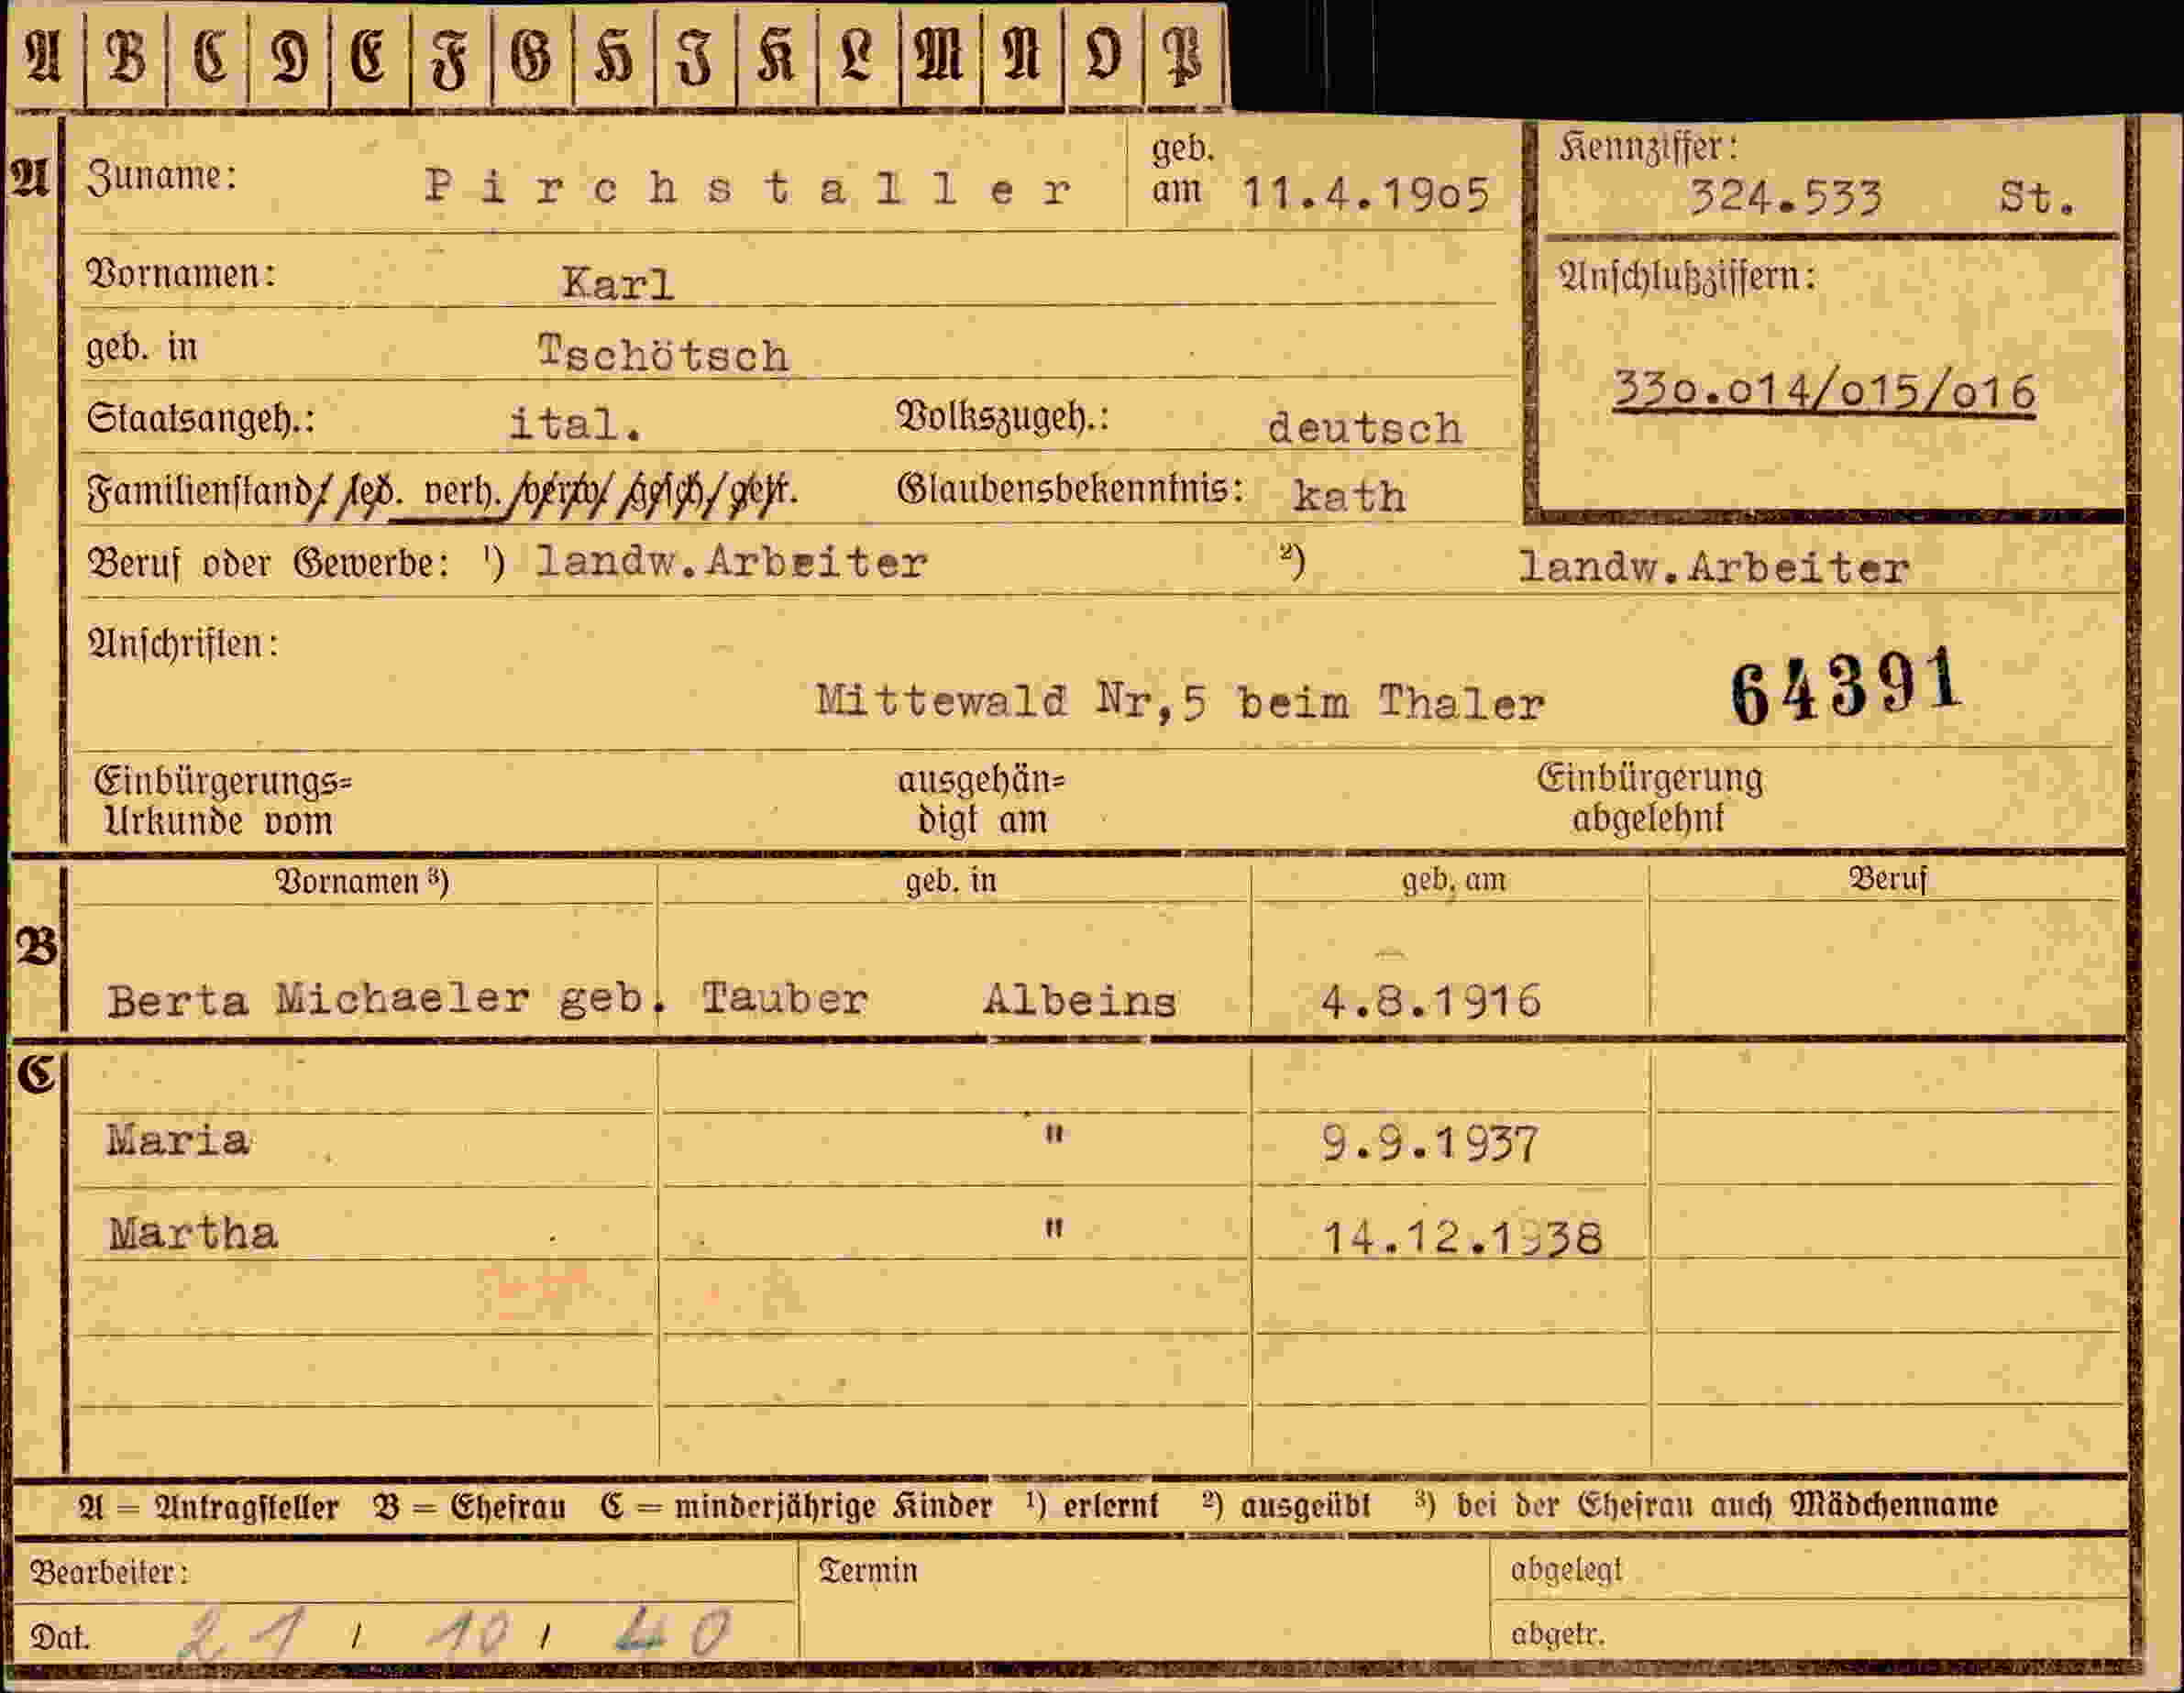 A B C D E F G H I K L M N O P
A Zuname: Pirchstaller geb. am 11.4.19o5 Kennziffer: 324.533 St.
Vornamen: Karl Anschlußziffern:
geb. in Tschötsch 33o.o14/o15/o16
Staatsangeh.: ital. Volkszugeh.: deutsch
Familienstand/ led. verh. /verw/ gesch/ getr. Glaubensbekenntnis: kath
Beruf oder Gewerbe: ¹) landw.Arbeiter ²) landw.Arbeiter
Anschriften:
Mittewald Nr,5 beim Thaler 64391
Einbürgerungs= ausgehän= Einbürgerung
Urkunde vom digt am abgelehnt
Vornamen ³) geb. in geb. am Beruf
B
Berta Michaeler geb. Tauber Albeins 4.8.1916
C
Maria " 9.9.1937
Martha " 14.12.1938
A = Antragsteller B = Ehefrau C = minderjährige Kinder ¹) erlernt ²) ausgeübt ³) bei der Ehefrau auch Mädchenname
Bearbeiter: Termin abgelegt
Dat. 21 / 10 / 40 abgetr.